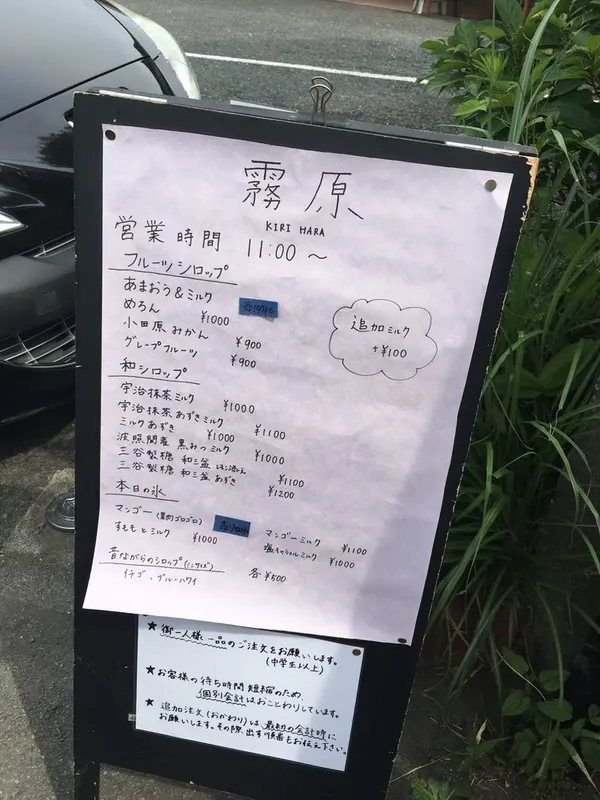 霧原
KIRI HARA
営業時間 11:00～
フルーツシロップ
あまおう&ミルク
めろん ¥1000
小田原みかん ¥900
グレープフルーツ ¥900
追加ミルク
+¥100
和シロップ
宇治抹茶ミルク ¥1000
宇治抹茶あずきミルク ¥1100
ミルクあずき ¥1000
波照間産黒みつミルク ¥1000
三谷製糖 和三盆 レモン添え ¥1100
三谷製糖 和三盆 あずき ¥1200
本日の氷
マンゴー(果肉ゴロゴロ) マンゴーミルク ¥1100
すももとミルク ¥1000 塩キャラメルミルク ¥1000
昔ながらのシロップ(ミニサイズ)
イチゴ・ブルーハワイ 各¥500
★御一人様一品のご注文をお願いします。
(中学生以上)
★お客様の待ち時間短縮のため、
個別会計はおことわりしています。
★追加注文(おかわり)は最初の会計時に
お願いします。その際、出す順番もお伝え下さい。